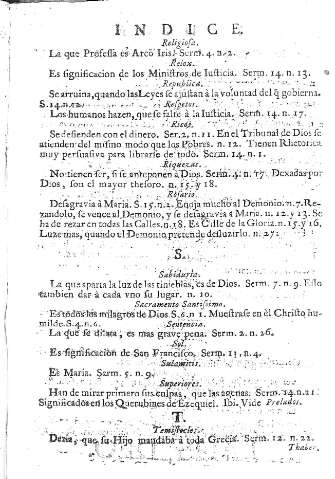 INDICE.
Religiosa.
La que Professa es Arco Iris. Serm. 4. n. 2.
Relox.
Es significacion de los Ministros de Iusticia. Serm. 14. n. 13.
Republica.
Se arruina, quando las Leyes se ajustan à la voluntad del q̃ gobierna.
S. 14. n. 12.
Respetos.
Los humanos hazen, que se falte à la Iusticia. Serm. 14. n. 17.
Ricos.
Se defienden con el dinero. Ser. 2. n. 11. En el Tribunal de Dios se
atienden del mismo modo que los Pobres. n. 12. Tienen Rhetorica
muy persuasiva para librarse de todo. Serm. 14. n. 1.
Riquezas.
No tienen ser, si se anteponen à Dios. Serm. 4. n. 17. Dexadas por
Dios, son el mayor thesoro. n. 15. y 18.
Rosario.
Desagravia à Maria. S. 15. n. 2. Enoja mucho al Demonio. n. 7. Re-
zandolo, se vence al Demonio, y se desagravia à Maria. n. 12. y 13. Se
ha de rezar en todas las Calles. n. 18. Es Calle de la Gloria. n. 15. y 16.
Luze mas, quando el Demonio pretende desluzirlo. n. 27.
S.
Sabiduria.
La que aparta la luz de las tinieblas, es de Dios. Serm. 7. n. 9. Esso
tambien dar à cada vno su lugar. n. 10.
Sacramento Santissimo.
Es todos los milagros de Dios S. 6. n 1. Muestrase en èl Christo hu-
milde. S. 4. n. 6.
Sentencia.
La que se dilata, es mas grave pena. Serm. 2. n. 26.
Sol.
Es significacion de San Francisco. Serm. 11. n. 4.
Sulamitis.
Es Maria. Serm. 5. n. 9.
Superiores.
Han de mirar primero sus culpas, que las agenas. Serm. 14. n. 21.
Significados en los Querubines de Ezequiel. Ibi. Vide Prelados.
T.
Temistocles.
Dezia, que su Hijo mandaba à toda Grecia. Serm. 12. n. 22.
Thabor.